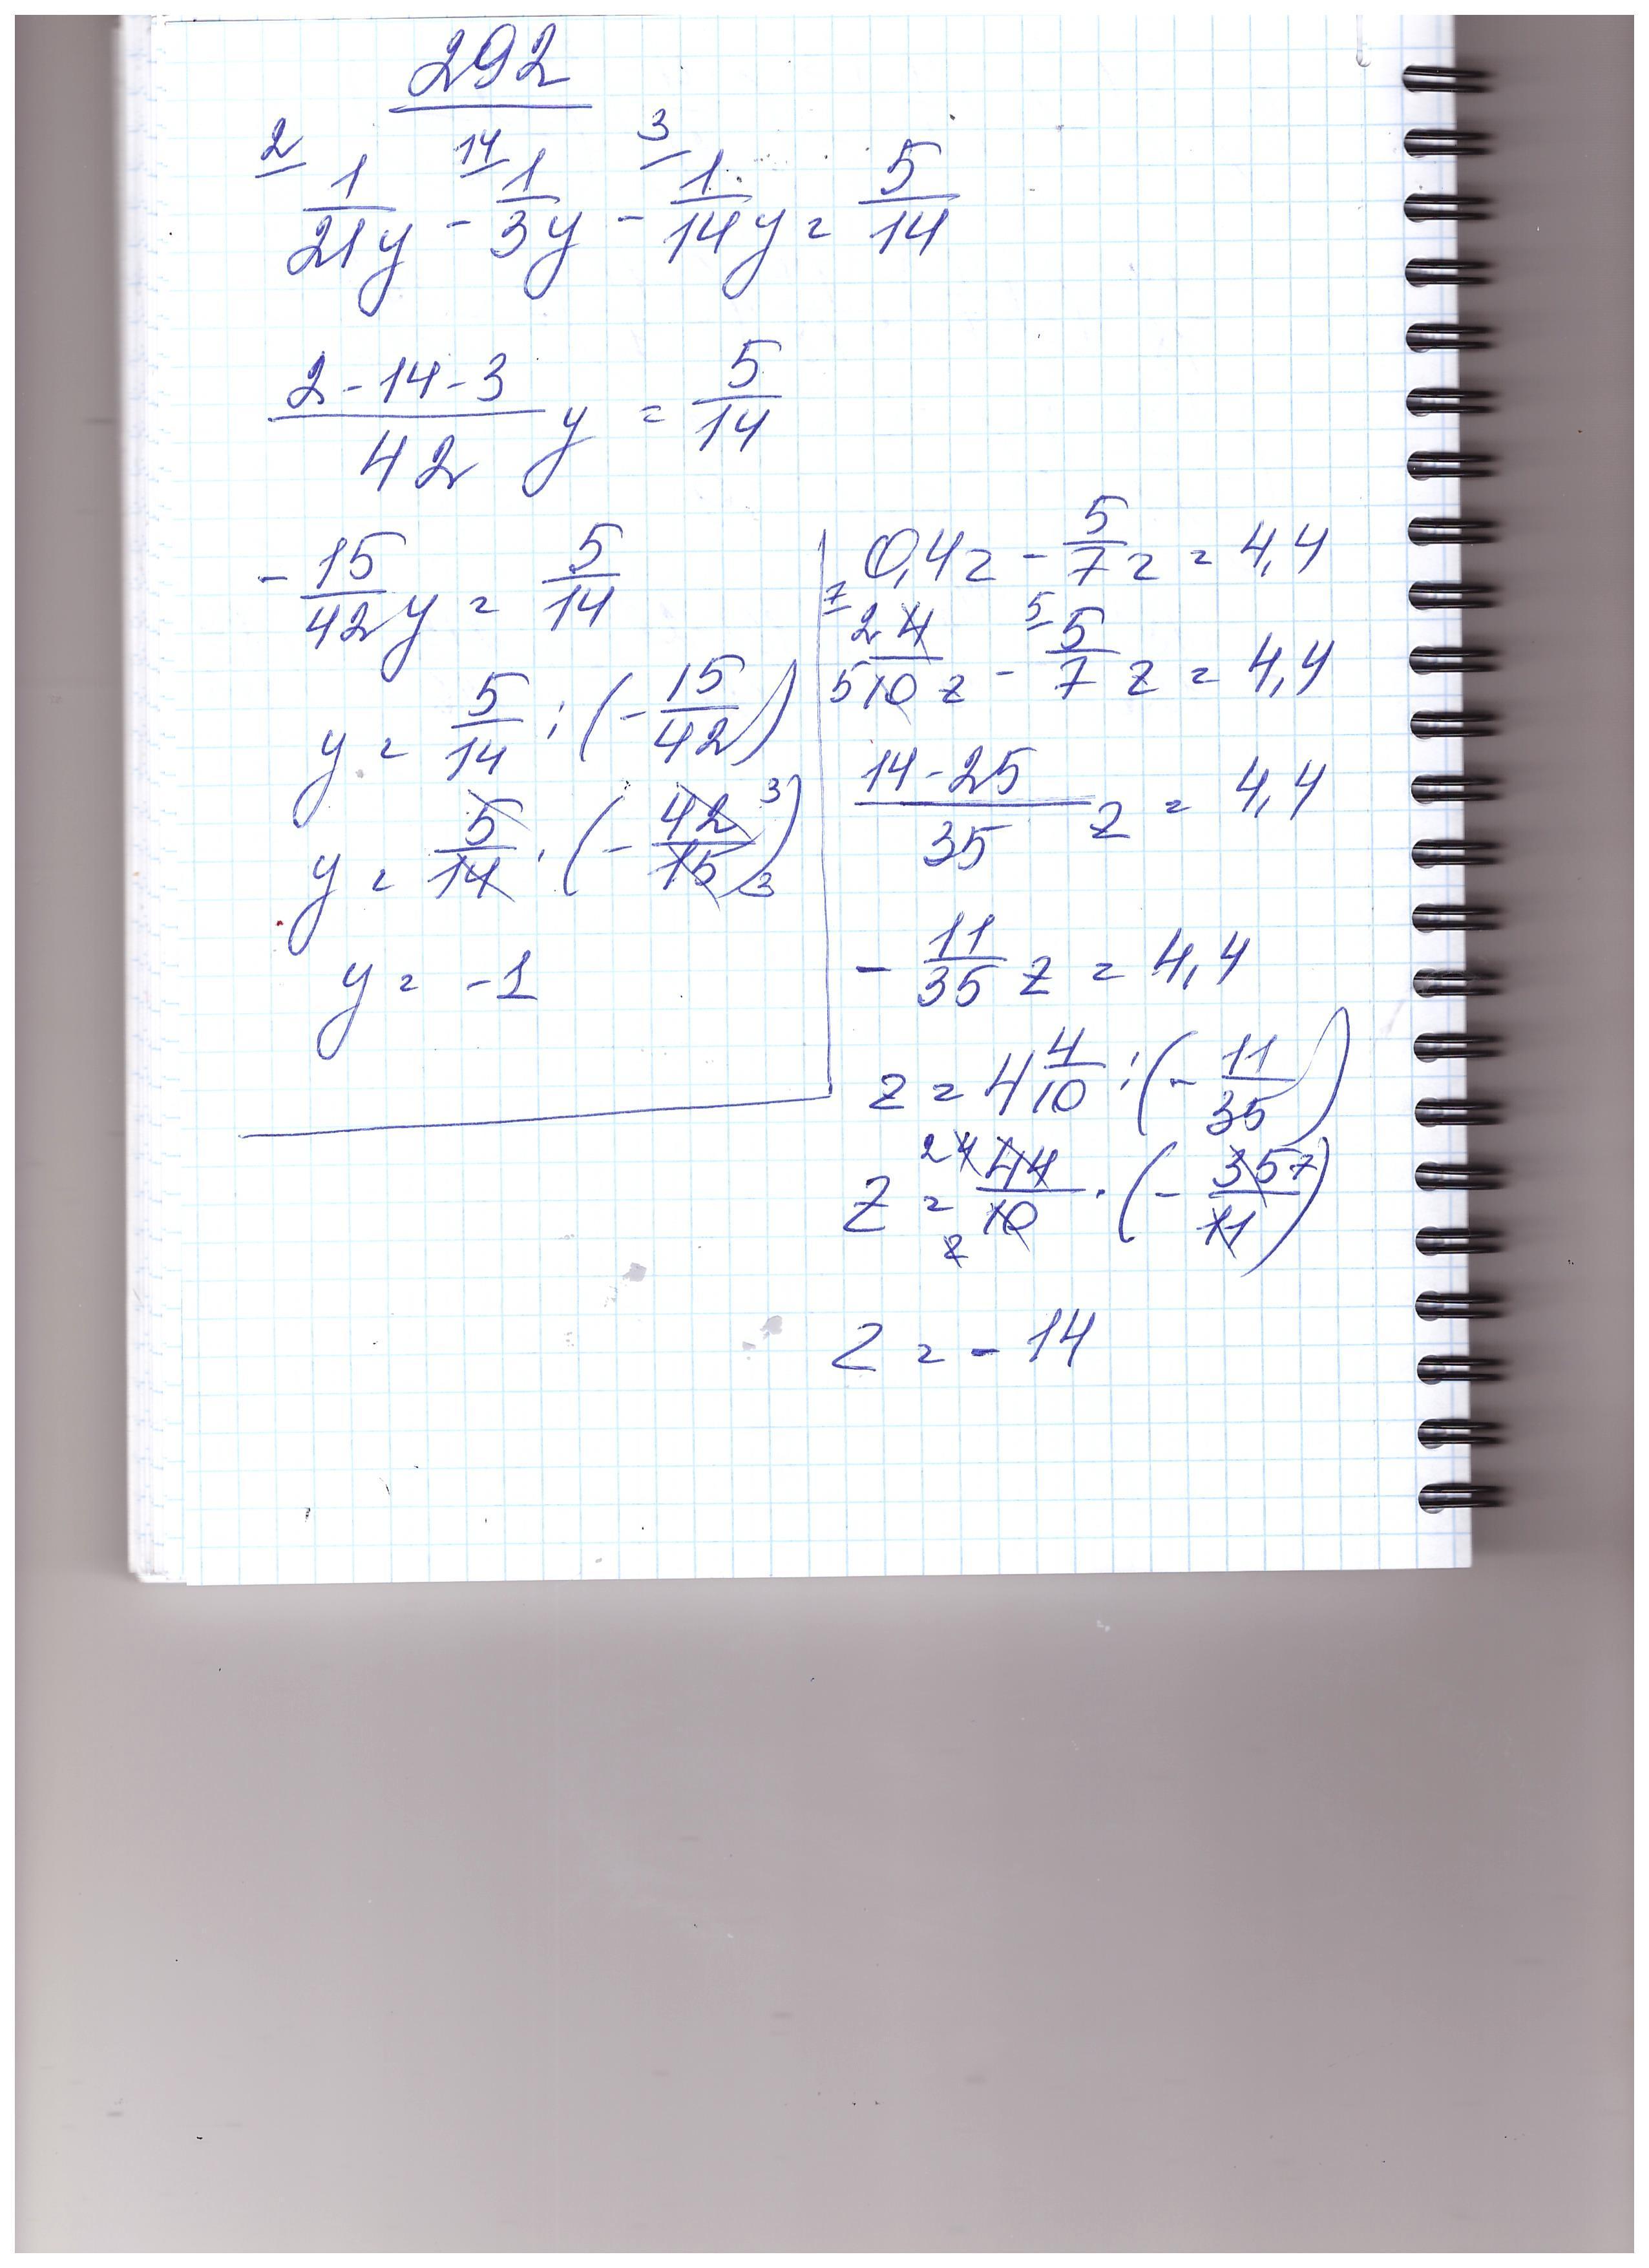 292
2 14 3
1/21 y - 1/3 y - 1/14 y = 5/14
(2 - 14 - 3)/42 y = 5/14
- 15/42 y = 5/14
y = 5/14 : (- 15/42)
y = 5/14 · (- 42/15) 3 3
y = -1
0,4z - 5/7 z = 4,4
7 2 5
4/10 z - 5/7 z = 4,4
5
(14 - 25)/35 z = 4,4
- 11/35 z = 4,4
z = 4 4/10 : (- 11/35)
2 4 7
z = 44/10 · (- 35/11)
2
z = - 14